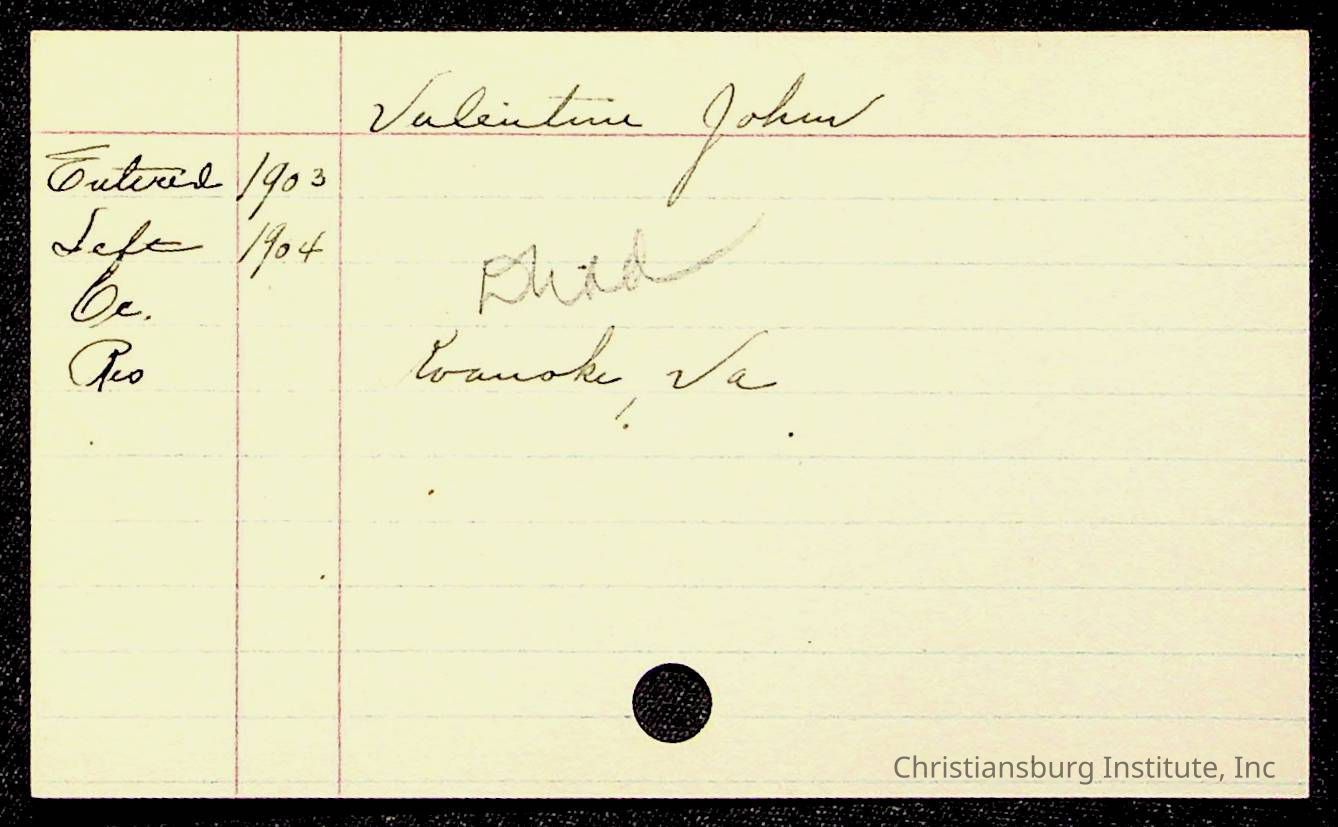 Valentine John
Entered 1903
Left 1904
Oc.
Res Roanoke, Va
Christiansburg Institute, Inc